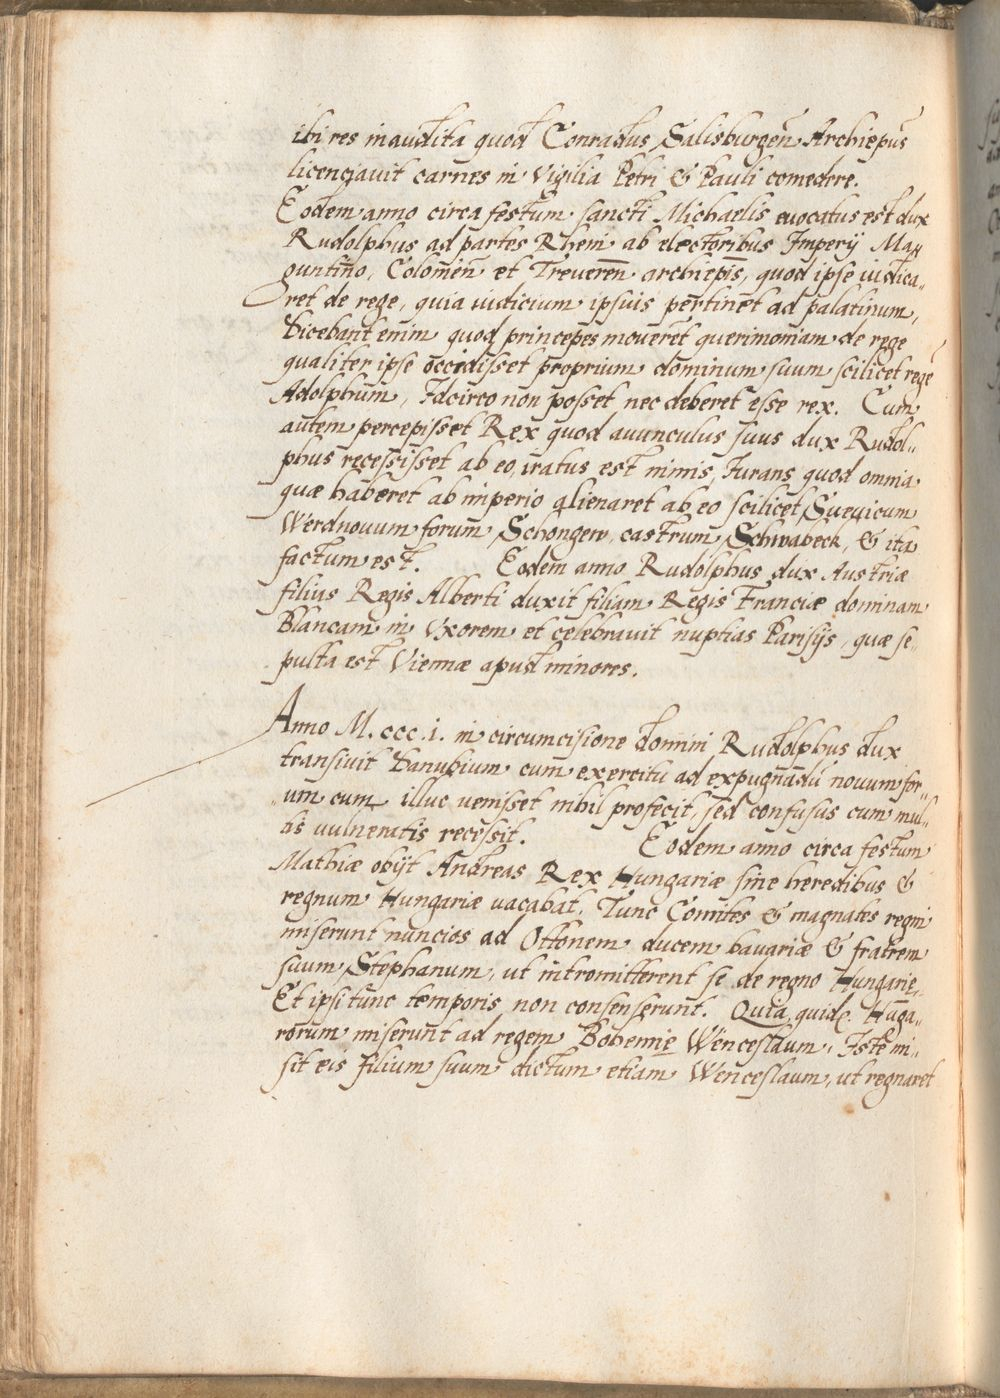 ibi res inaudita quod Conradus Salisburgen̄ Archiepūs
licenciavit carnes in Vigilia Petri & Pauli comedere.
Eodem anno circa festum sancti Michaelis euocatus est dux
Rudolphus ad partes Rheni ab electoribus Imperij Mag
guntino, Colonien̄ et Treveren̄ archiepis̄, quod ipse iudica„
ret de rege, quia iudicium ipsius pertinet ad palatinum,
Dicebant enim quod principes moverēt querimoniam de rege
qualiter ipse occidisset proprium dominum suum scilicet regē
Adolphum, Idcirco non posset nec deberet esse rex. Cum
autem percepisset Rex quod auunculus suus dux Rudol„
phus recessisset ab eo, iratus est nimis, Iurans quod omnia
quæ haberet ab imperio alienaret ab eo scilicet Sueuicum
Werdnouum forum, Schongew, castrum Schwabeck, & ita
factum est. Eodem anno Rudolphus dux Austriæ
filius Regis Alberti duxit filiam Regis Franciæ dominam
Blancam in Vxorem et celebravit nuptias Parisijs, quæ se„
pulta est Viennæ apud minores.
Anno M.ccc.i. in circumcisione domini Rudolphus dux
transiuit Danubium cum exercitu ad expugnādū nouum for„
„um cum illuc uenisset nihil profecit, sed confusus cum mul„
tis uulneratis recessit. Eodem anno circa festum
Mathiæ obijt Andreas Rex Hungariæ sine heredibus &
regnum Hungariæ uacabat. Tunc Comites & magnates regni
miserunt nuncios ad Ottonem ducem bauariæ & fratrem
suum Stephanum, ut intromitterent se de regno Hungarie,
Et ipsi tunc temporis non consenserunt. Quia quidā Hūga„
rorum miserunt ad regem Bohemie Wenceslaum. Iste mi„
sit eis filium suum dictum etiam Wenceslaum, ut regnaret